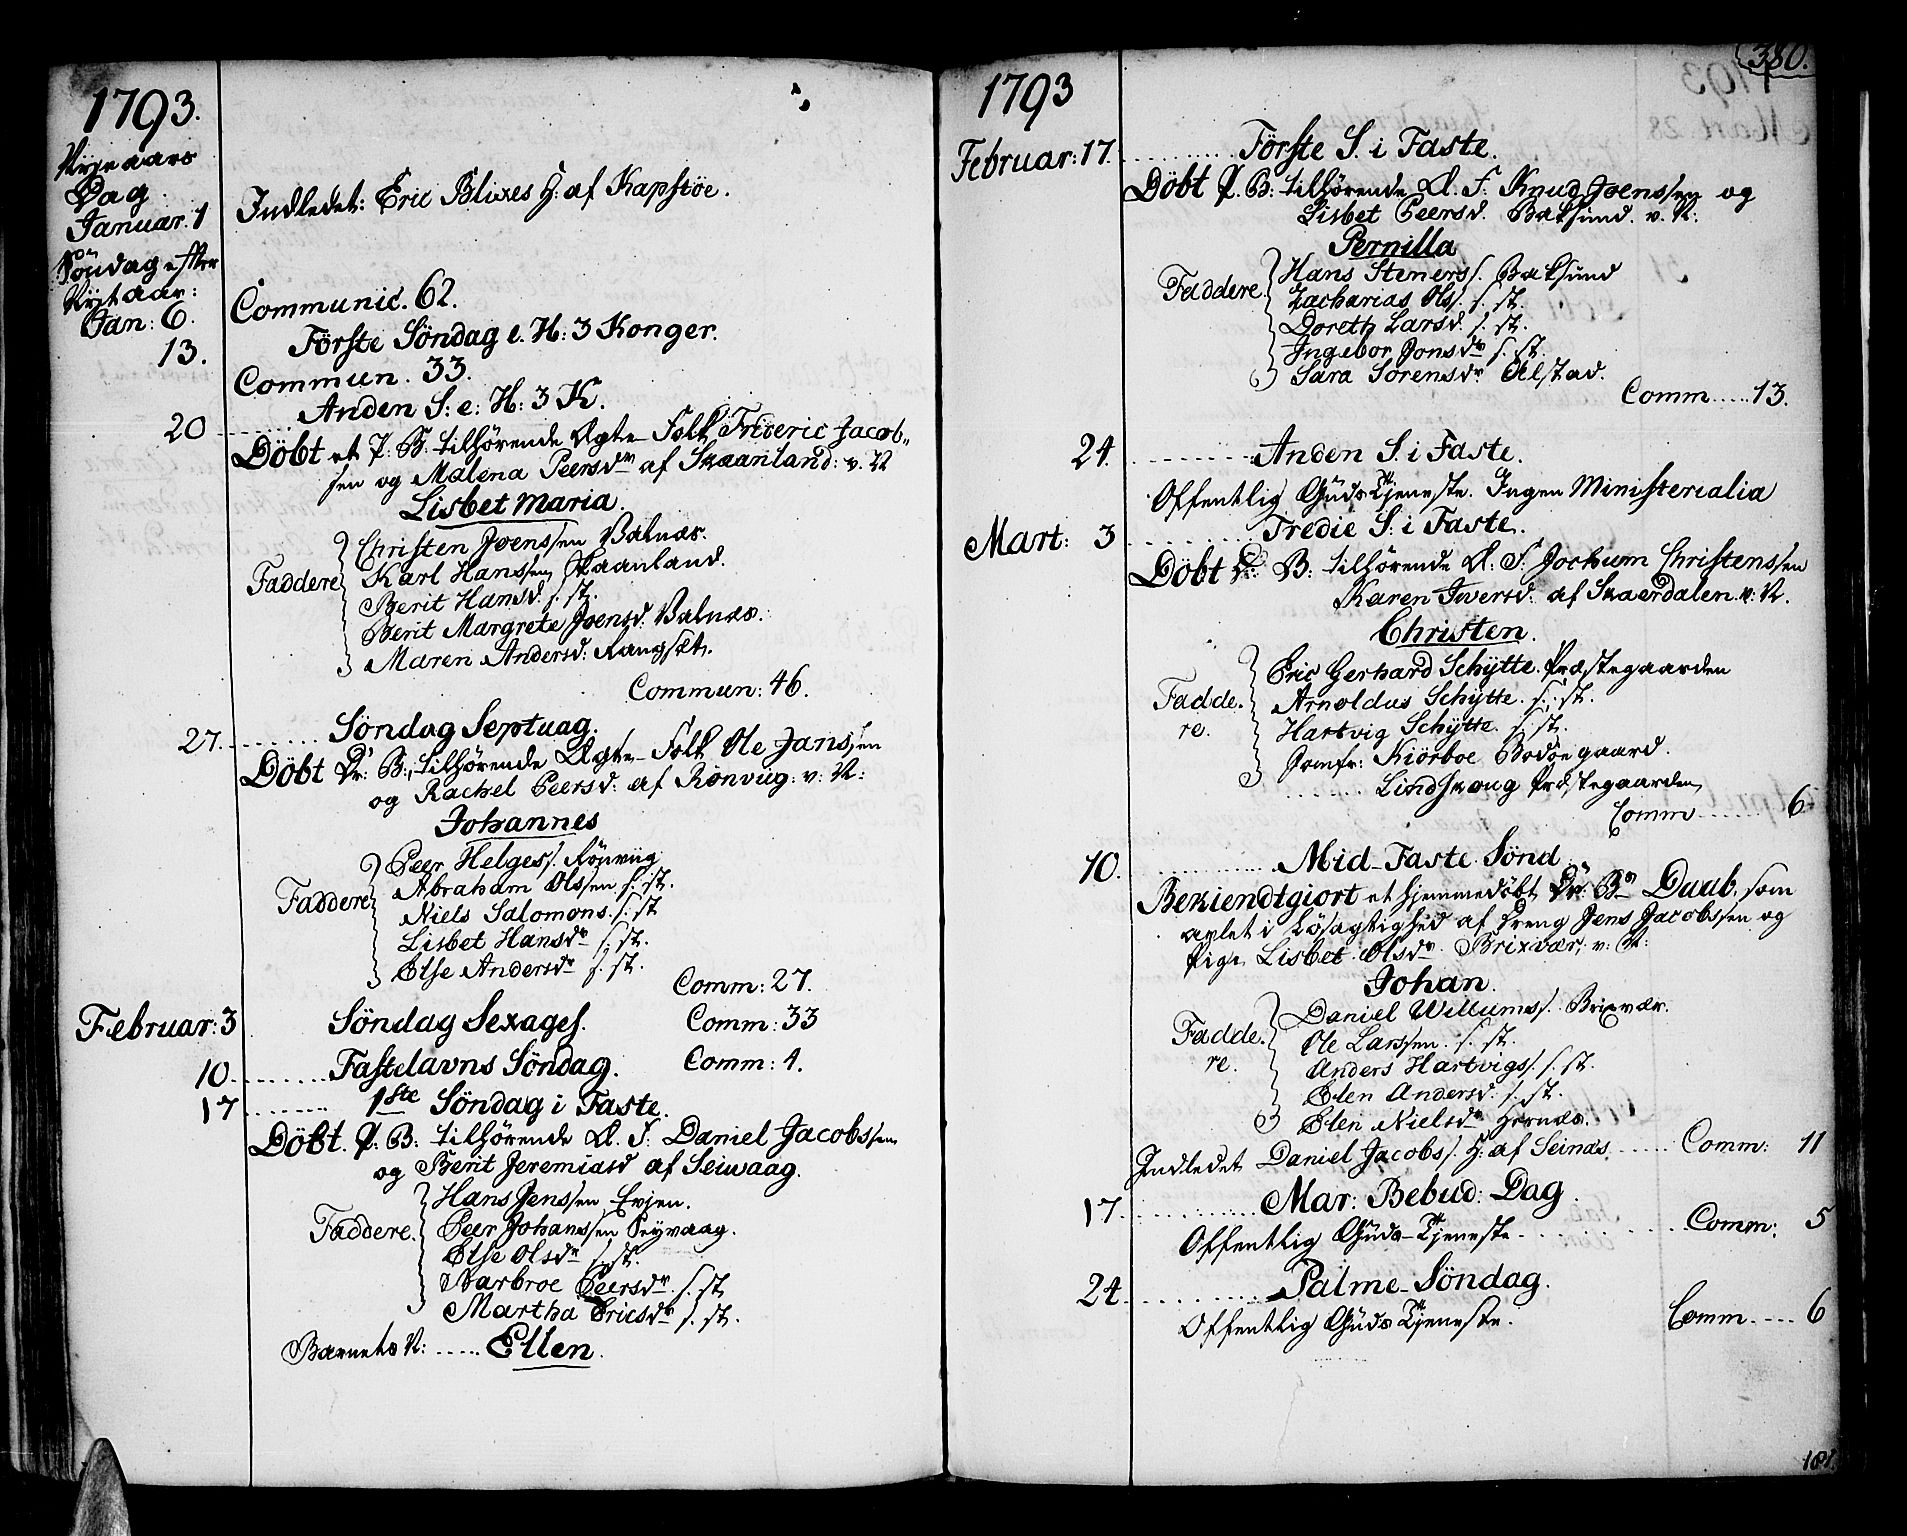 1793.
Nyeaars
Dag.
Januar. 1
Indledet: Eric Blixes H. af Kapstöe.
Söndag efter
Nytaar:
Jan: 6.
Communic. 62.
13.
Förste Söndag e. H: 3 Konger.
Commun. 33.
Anden S: e: H: 3 K.
20
Döbt et P. B. tilhörende Ægte-Folk Frideric Jacob„
sen og Malena Peersdr af Skaanland: v. N
Lisbet Maria.
Faddere
Christen Joenssen Valnæs.
Karl Hanssen Skaanland.
Berit Hansd. s. st.
Berit Margrete Joensd. Valnæs.
Maren Andersd: Langset.
Commun: 46.
27.
Söndag Septuag.
Döbt Dr: B:, tilhörende Ægte-Folk Ole Janssen
og Rachel Peersd: af Rönvug: v: N:
Johannes
Faddere
Peer Helgess. Rönviig
Abraham Olssen s. st.
Niels Salomons. s. st
Lisbet Hansdr s. st.
Else Andersdr s. st.
Comm: 27.
Februar: 3
Söndag Sexages.
Comm: 33
10.
Fastelavns Söndag.
Comm: 1.
17
1ste Söndag i Faste.
Döbt. P. B. tilhörende Æ. F. Daniel Jacobssen
og Berit Jeremiasd af Seiwaag.
Faddere.
Hans Jenssen Evjen.
Peer Johanssen Seyvaag.
Else Olsdr s. st.
Narbroe Peersdr s. st
Martha Ericsdr s. st.
Barnets N: ..... Ellen.
380.
1793
Februar: 17.
Förste S. i Faste.
Döbt P. B. tilhörende Æ. F. Knud Joenssen og
Lisbet Peersd. Baksund. v. N:
Pernilla
Faddere.
Hans Stemerss. Baksund
Zacharias Ols. s. st.
Doreth Larsd. s. st.
Ingebor Jonsdr s. st.
Sara Sorensdr Ælstad.
Comm ..... 13.
24.
Anden S. i Faste.
Offentlig Guds Tjeneste. Ingen Ministerialia
Mart: 3
Tredie S. i Faste.
Döbt Dr. B: tilhörende Æ. F. Jochum Christenssen
Karen Iversd. af Skaerdalen. v: N.
Christen.
Fadde.
re.
Eric Gerhard Schÿtte. Præstegaarden
Arnoldus Schÿtte. s. st.
Hartvig Schÿtte. s. st.
Jomfr: Kiörboe Bodöegaard.
Lindskoug Præstegaarden
Comm ...... 6
10.
Mid-Faste Sönd
Bekiendtgiort et hjemmedöbt Dr. Bn Daab, som
avlet i Lösagtighed af Dreng Jens Jacobssen og
Pige Lisbet Olsdr Brixvær, v: N:
Johan.
Fadde.
re.
Daniel Willumss. Brixvær.
Ole Larssen. s. st.
Anders Hartvigs. s. st.
Elen Andersd. s. st.
Elen Nielsdr Hernæs.
Indledet Daniel Jacobs. H. af Seinæs. ..... Comm: 11
17.
Mar: Bebud: Dag.
Offentlig Guds-Tjeneste. ..... Comm: 5
24.
Palme-Söndag.
Offentlig Guds Tjeneste.
Comm .... 6
181